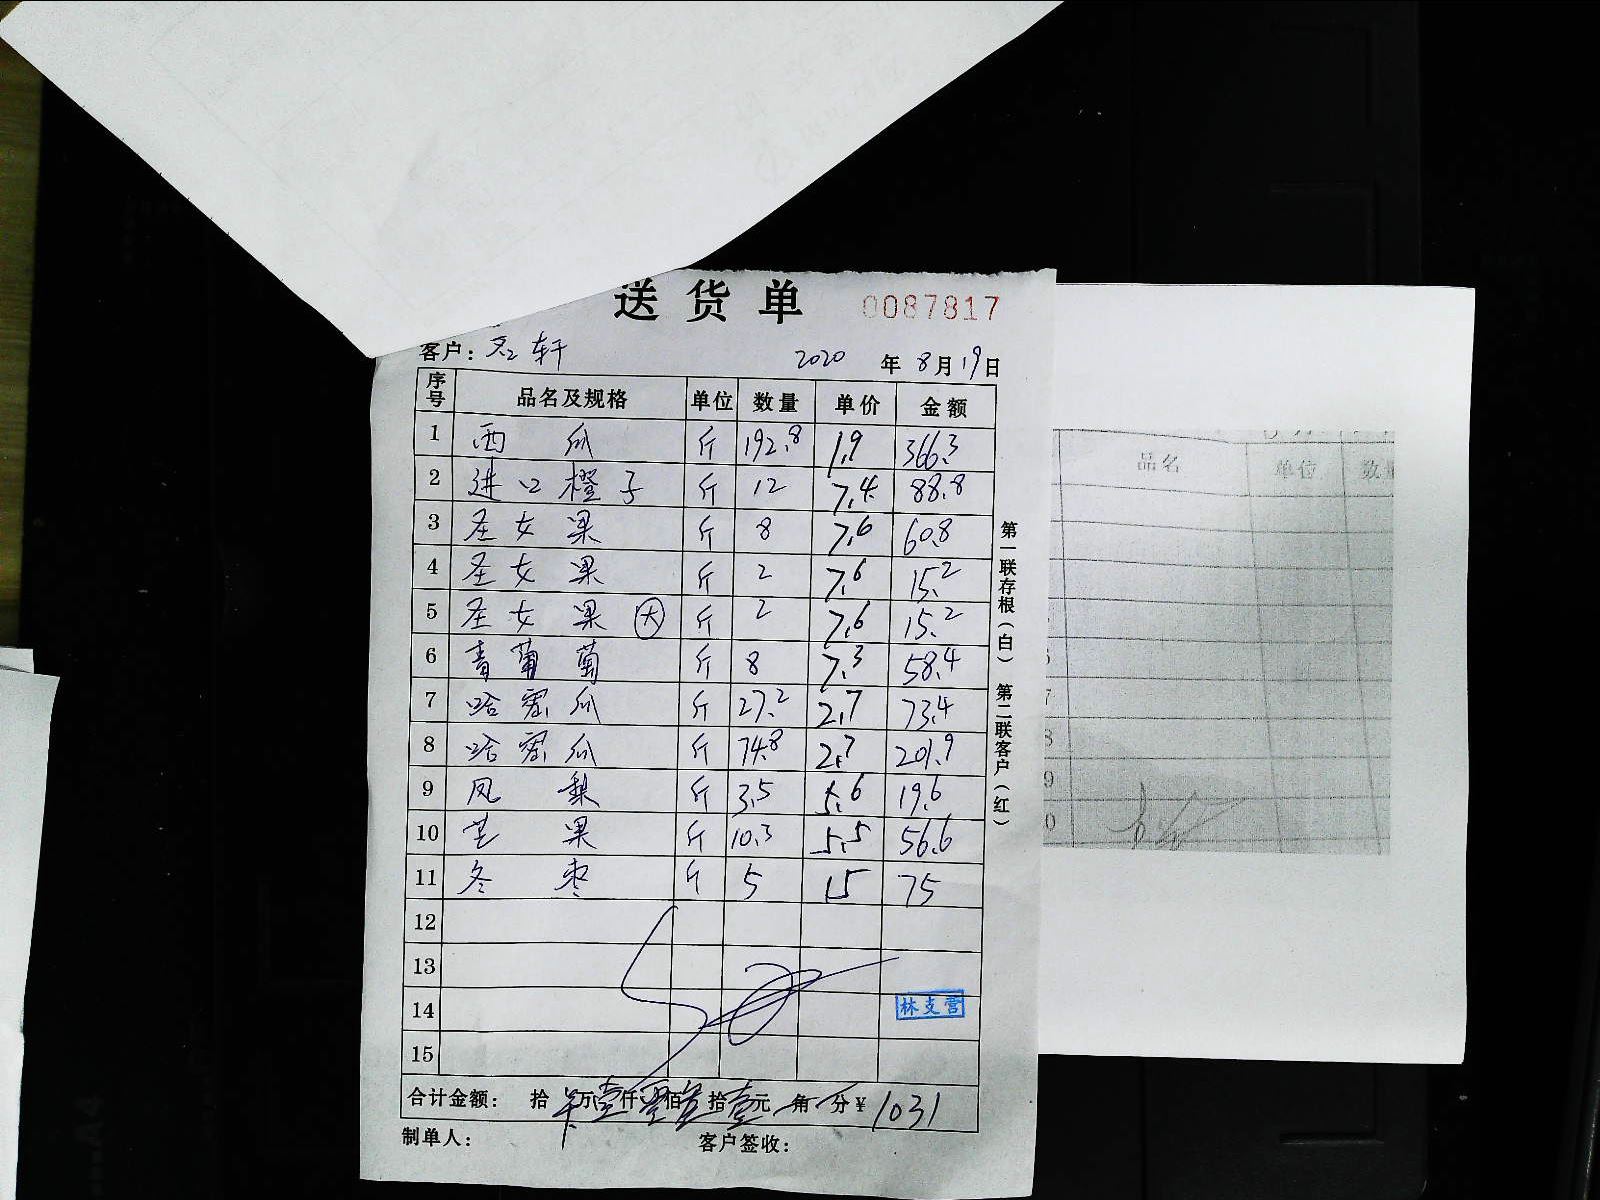 送货单 0087817
客户: 名轩 2020 年 8 月 19 日
序号 品名及规格 单位 数量 单价 金额
1 西瓜 斤 192.8 1.9 366.3
2 进口橙子 斤 12 7.4 88.8
3 圣女果 斤 8 7.6 60.8
4 圣女果 斤 2 7.6 15.2
5 圣女果 大 斤 2 7.6 15.2
6 青葡萄 斤 8 7.3 58.4
7 哈密瓜 斤 27.2 2.7 73.4
8 哈密瓜 斤 74.8 2.7 201.9
9 凤梨 斤 3.5 5.6 19.6
10 芒果 斤 10.3 5.5 56.6
11 冬枣 斤 5 15 75
12
13
14 林支营
15
合计金额: 拾 万壹仟零佰叁拾壹元 角 分 ¥ 1031
制单人: 客户签收:
第一联存根(白) 第二联客户(红)
品名 单位
7
8
9
0